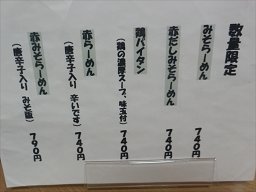 数量限定
みそらーめん 740円
赤だしみそらーめん 740円
鶏パイタン 740円
(鶏の濃厚スープ、味玉付)
赤らーめん 740円
(唐辛子入り 辛いです)
赤みそらーめん 790円
(唐辛子入り みそ味)